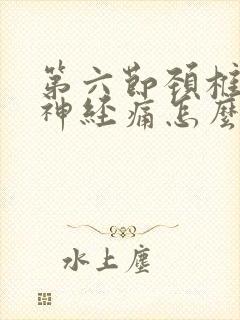 第六節頚椎
神経痛怎麼
水上塵